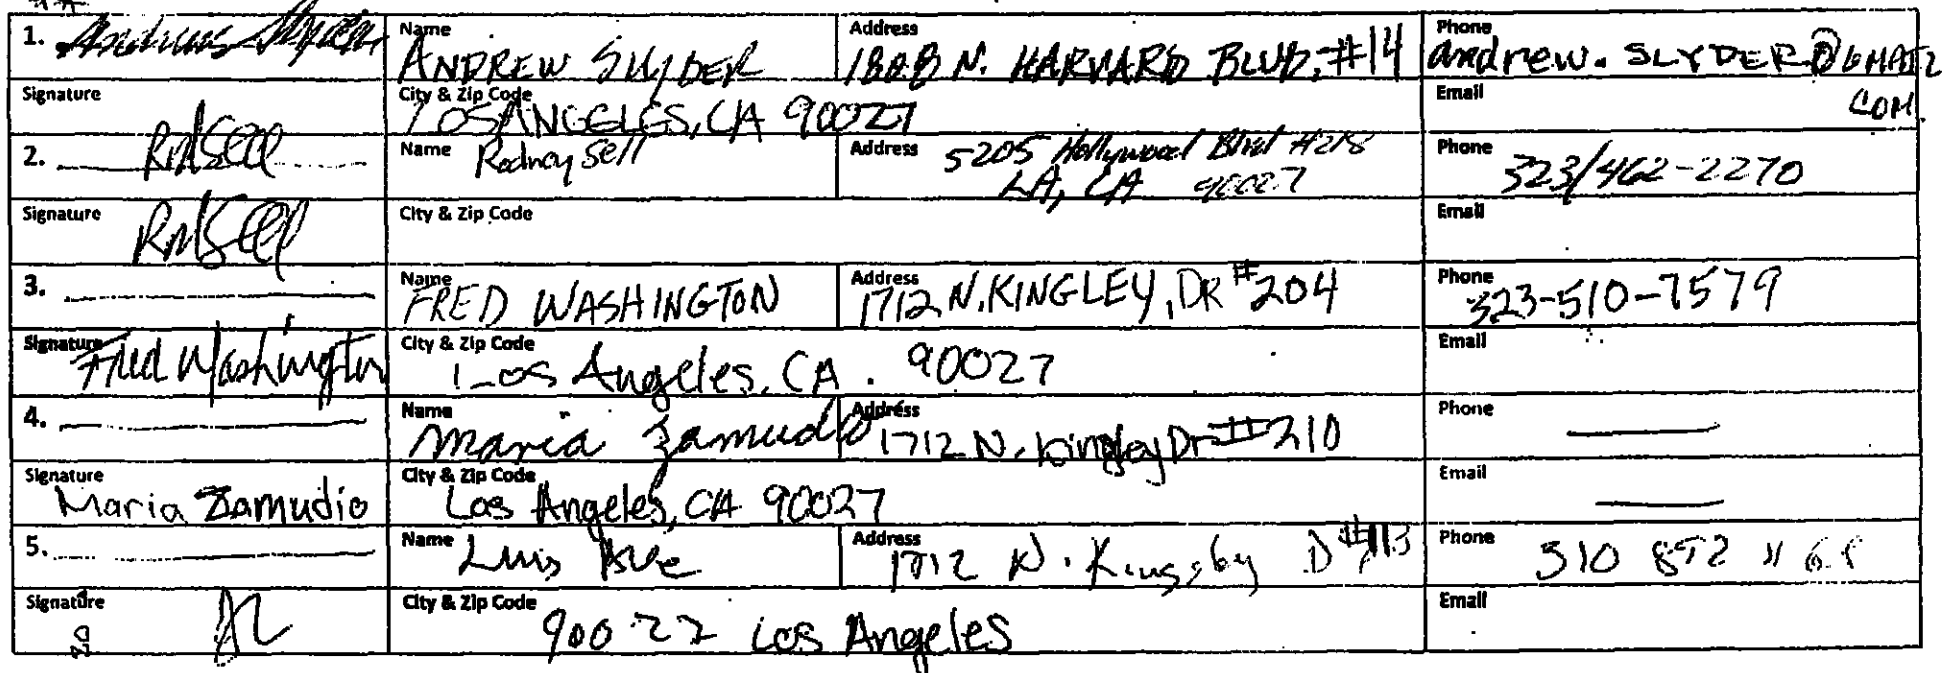 1. Name Address Phone
ANDREW SLYDER 1808 N. HARVARD BLVD, #14 andrew.SLYDER@GMAIL
Signature City & Zip Code Email COM
LOS ANGELES, CA 90027
2. RndSell Name Rodney Sell Address 5205 Hollywood Blvd #218 Phone 323/462-2270
LA, CA 90027
Signature RndSell City & Zip Code Email
3. Name FRED WASHINGTON Address 1712 N. KINGLEY, DR #204 Phone 323-510-7579
Signature Fred Washington City & Zip Code Los Angeles, CA. 90027 Email
4. Name Maria Zamudio Address 1712 N. Kingley Dr #210 Phone
Signature Maria Zamudio City & Zip Code Los Angeles, CA 90027 Email
5. Name Luis Address 1712 N. #113 Phone 310 872
Signature City & Zip Code 90022 Los Angeles Email